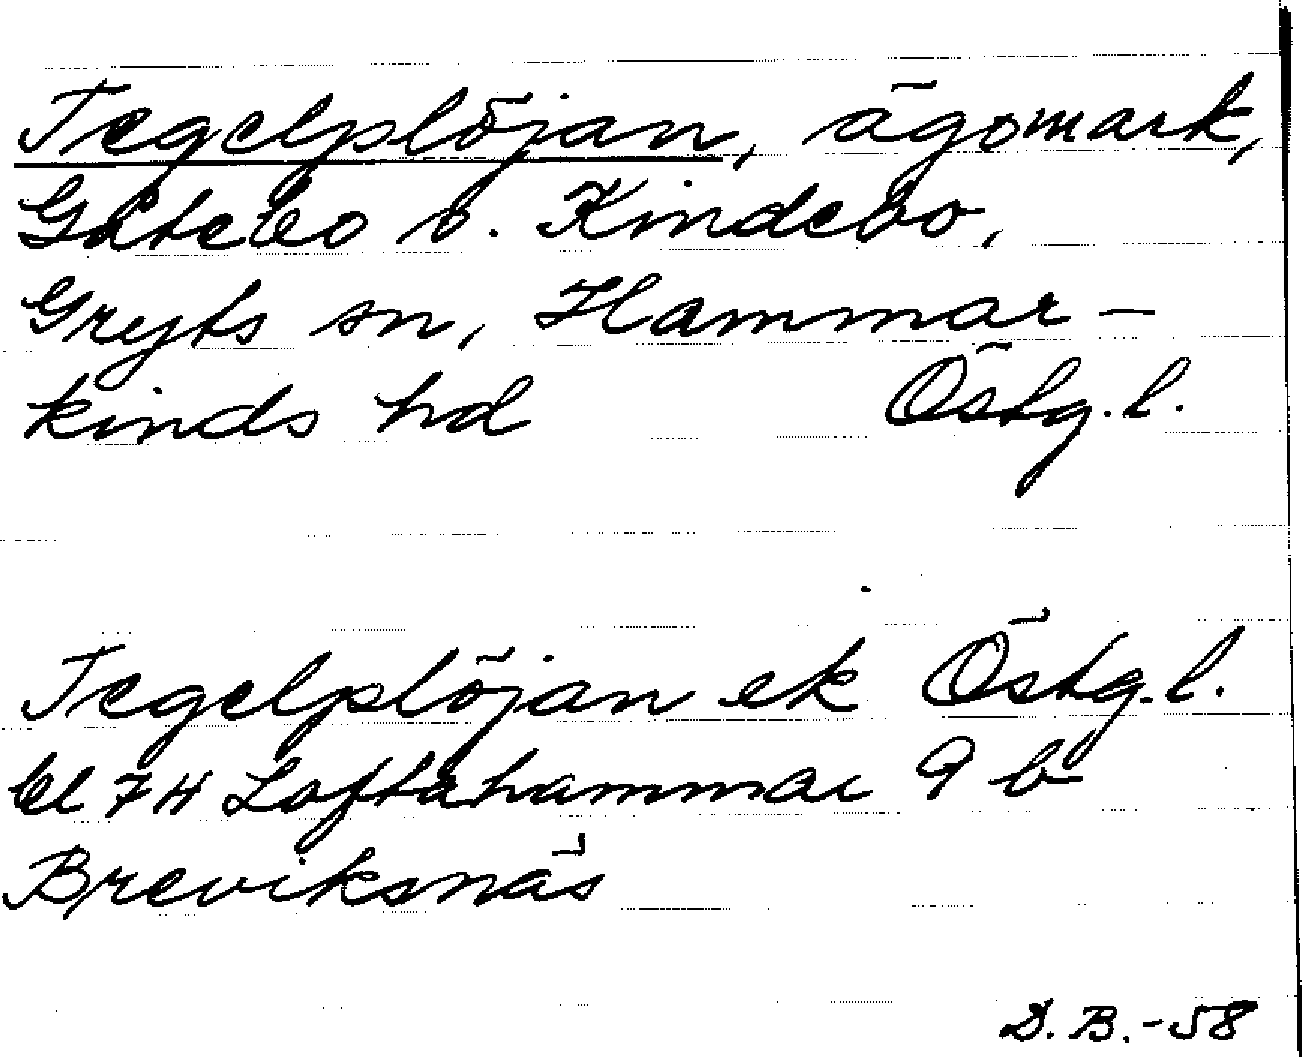 Tegelplöjan, ägomark,
Gåtebo o. Kindebo,
Gryts sn, Hammar-
kinds hd Östg. l.
Tegelplöjan ek Östg. l.
bl 7H Loftahammar 9 b
Breviksnäs
D. B. -58